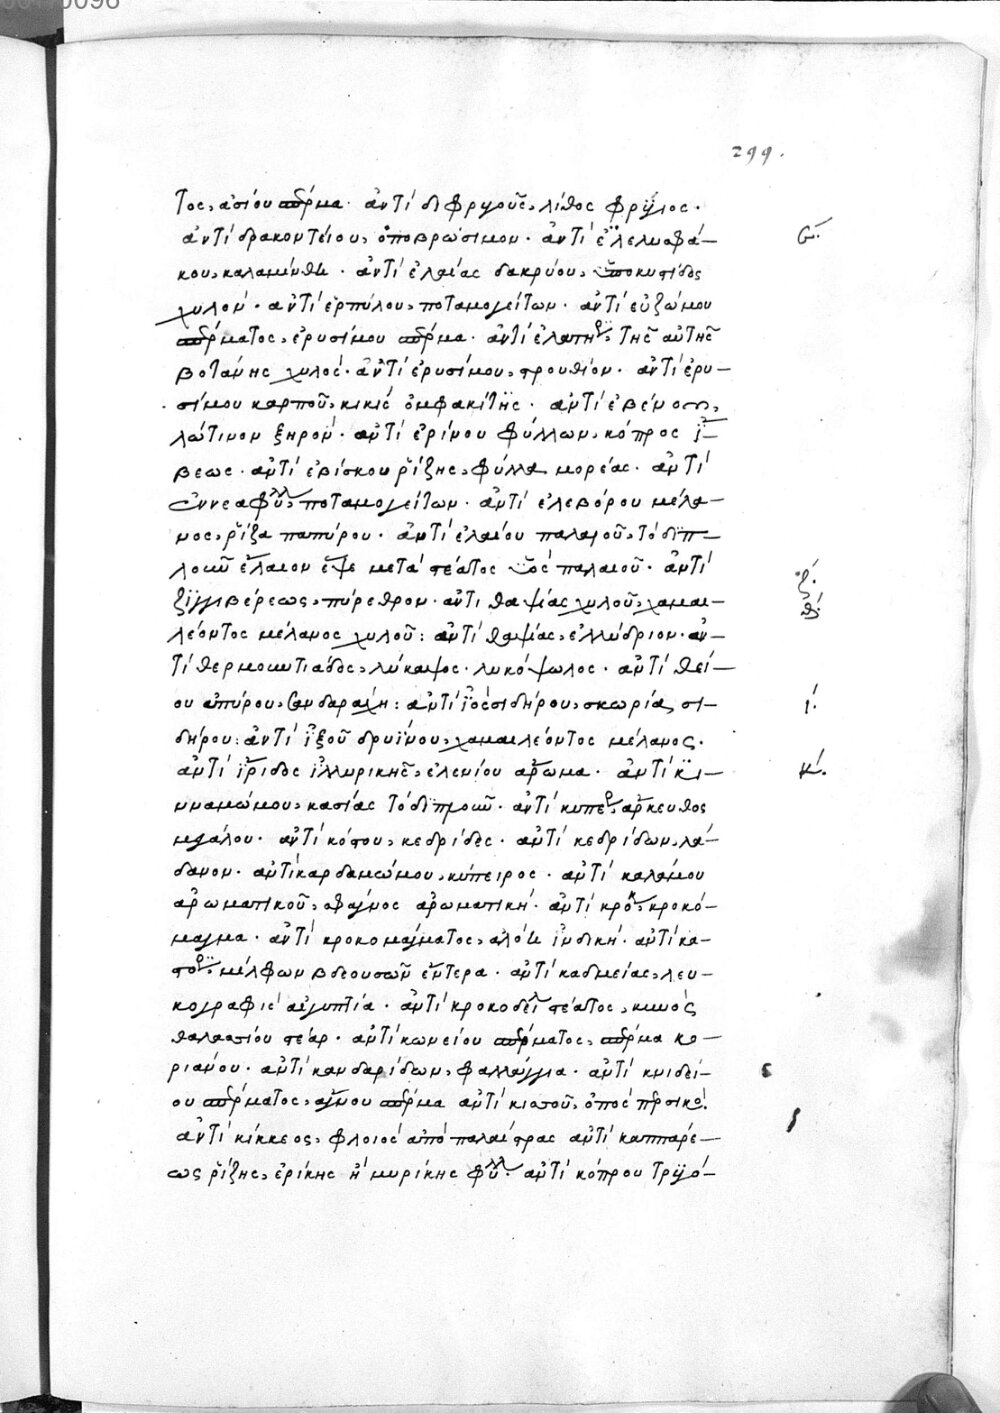 299.
τος, ἀσίου σπέρμα. ἀντὶ διφρυγοῦς, λίθος φρύγιος.
ἀντὶ δρακοντείου, ὀποβρώσιμον. ἀντὶ ἐλελισφά— ς.
κου, καλαμίνθη. ἀντὶ ἐλαίας δακρύου, ὑποκυστίδος
χυλόν. ἀντὶ ἑρπύλου, ποταμογείτων. ἀντὶ εὐζώμου
σπέρματος, ἐρυσίμου σπέρμα. ἀντὶ ἐλατηρ, τῆς αὐτῆς
βοτάνης χυλός. ἀντὶ ἐρυσίμου, στρουθίον. ἀντὶ ἐρυ—
σίμου καρποῦ, κικὶς ὀμφακίτης. ἀντὶ ἐβένου,
λώτινον ξηρόν. ἀντὶ ἐρίνου φύλλων, κόπρος ἴ—
βεως. ἀντὶ ἐβίσκου ῥίζης, φύλλα μορέας. ἀντὶ
ἐννεαφύλλ, ποταμογείτων. ἀντὶ ἐλεβόρου μέλα—
νος, ῥίζα παπύρου. ἀντὶ ἐλαίου παλαιοῦ, τὸ διπ—
λοῦν ἔλαιον ἕψε μετὰ στέατος ὑὸς παλαιοῦ. ἀντὶ ζ.
ζιγγιβέρεως, πύρεθρον. ἀντὶ θαψίας χυλοῦ, χαμαι— θ.
λέοντος μέλανος χυλοῦ: ἀντὶ θαψίας, ἐλλύδριον. ἀν—
τὶ θερμοκυτιάδος, λύκαψος. λυκόψωλος. ἀντὶ θεί—
ου ἀπύρου, σανδαράχη: ἀντὶ ἰὸς σιδήρου, σκωρία σι— ι.
δήρου: ἀντὶ ἰξοῦ δρυΐνου, χαμαιλέοντος μέλανος.
ἀντὶ ἴριδος ἰλλυρικῆς, ἐλενίου ἄρωμα. ἀντὶ κι— κ.
νναμώμου, κασίας τὸ διπλοῦν. ἀντὶ κυπερ, ἄρκευθος
μεγάλου. ἀντὶ κόστου, κεδρίδες. ἀντὶ κεδρίδων, λά—
δανον. ἀντὶ καρδαμώμου, κύπειρος. ἀντὶ καλάμου
ἀρωματικοῦ, σφάγνος ἀρωματική. ἀντὶ κρόκ, κροκό—
μαγμα. ἀντὶ κροκομάγματος, ἀλόη ἰνδική. ἀντὶ κα—
στορ, μίλφων βδεουσῶν ἔντερα. ἀντὶ καδμείας, λευ—
κογραφὶς αἰγυπτία. ἀντὶ κροκοδείλ στέατος, κυνὸς
θαλασσίου στέαρ. ἀντὶ κωνείου σπέρματος, σπέρμα κο—
ριάνου. ἀντὶ κανθαρίδων, φαλάγγια. ἀντὶ κνιδεί—
ου σπέρματος, ἄγνου σπέρμα ἀντὶ κισσοῦ, ὀπὸς περσικὸ.
ἀντὶ κίκκεος, φλοιὸς ἀπὸ παλαίστρας ἀντὶ καππάρε—
ως ῥίζης, ἐρίκης ἢ μυρίκης φύλλ. ἀντὶ κόπρου τρυγό—